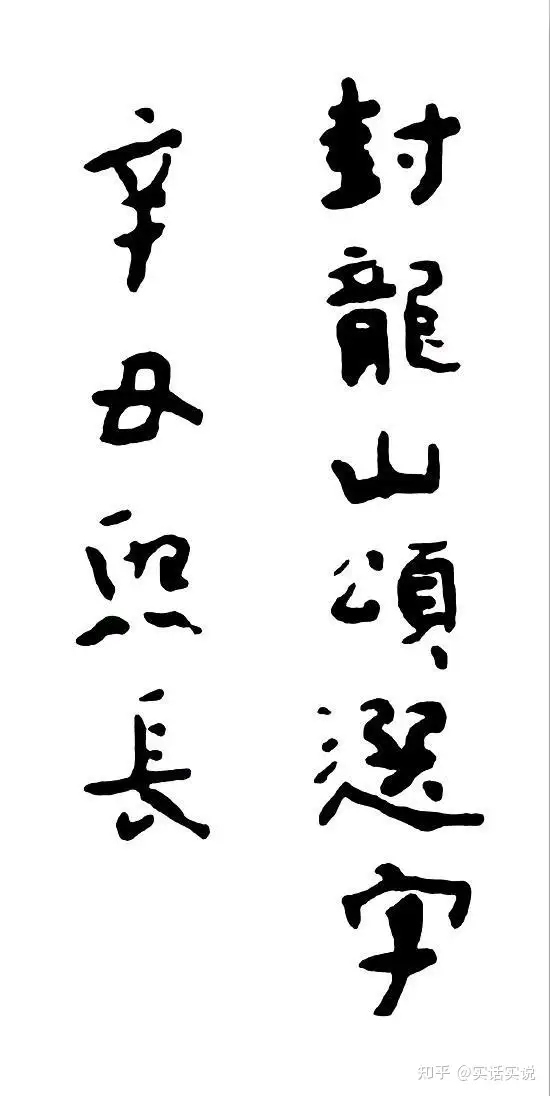 封龍山頌選字
辛丑熙長
知乎 @实话实说